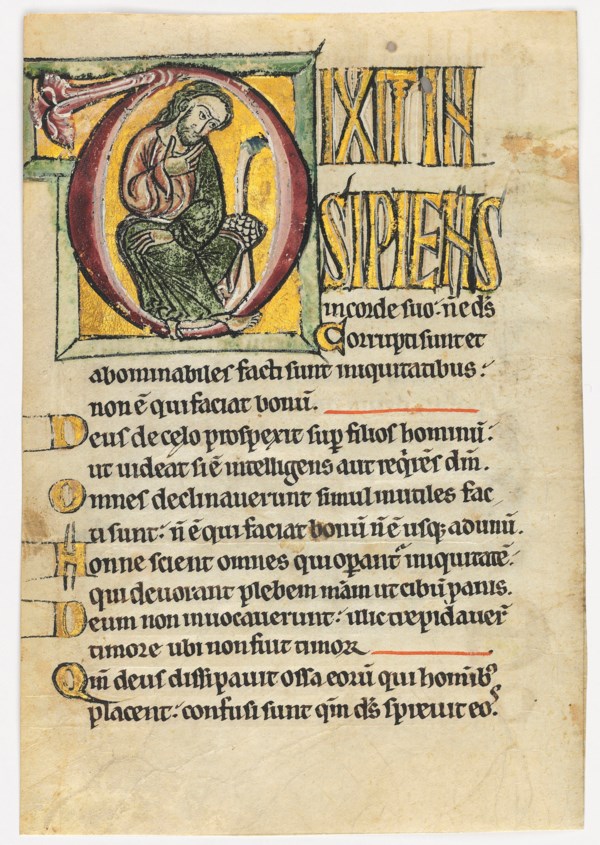 DIXIT IN
SIPIENS
in corde suo: nē ds̄
Corrupti sunt et
abominabiles facti sunt iniquitatibus:
non ē qui faciat bonū.
Deus de celo prospexit sup̄ filios hominū:
ut uideat si ē intelligens aut reqͥrēs dm̄.
Omnes declinauerunt simul inutiles fac
ti sunt: n̄ ē qui faciat bonū n̄ ē usq; ad unū.
Nonne scient omnes qui opant᷑ iniquitatē:
qui deuorant plebem mām ut cibū panis.
Deum non inuocauerunt: illic trepidauer̄
timore ubi non fuit timor
Qm̄ deus dissipauit ossa eorū qui hominibꝰ
placent: confusi sunt qm̄ ds̄ spreuit eoꝰ.